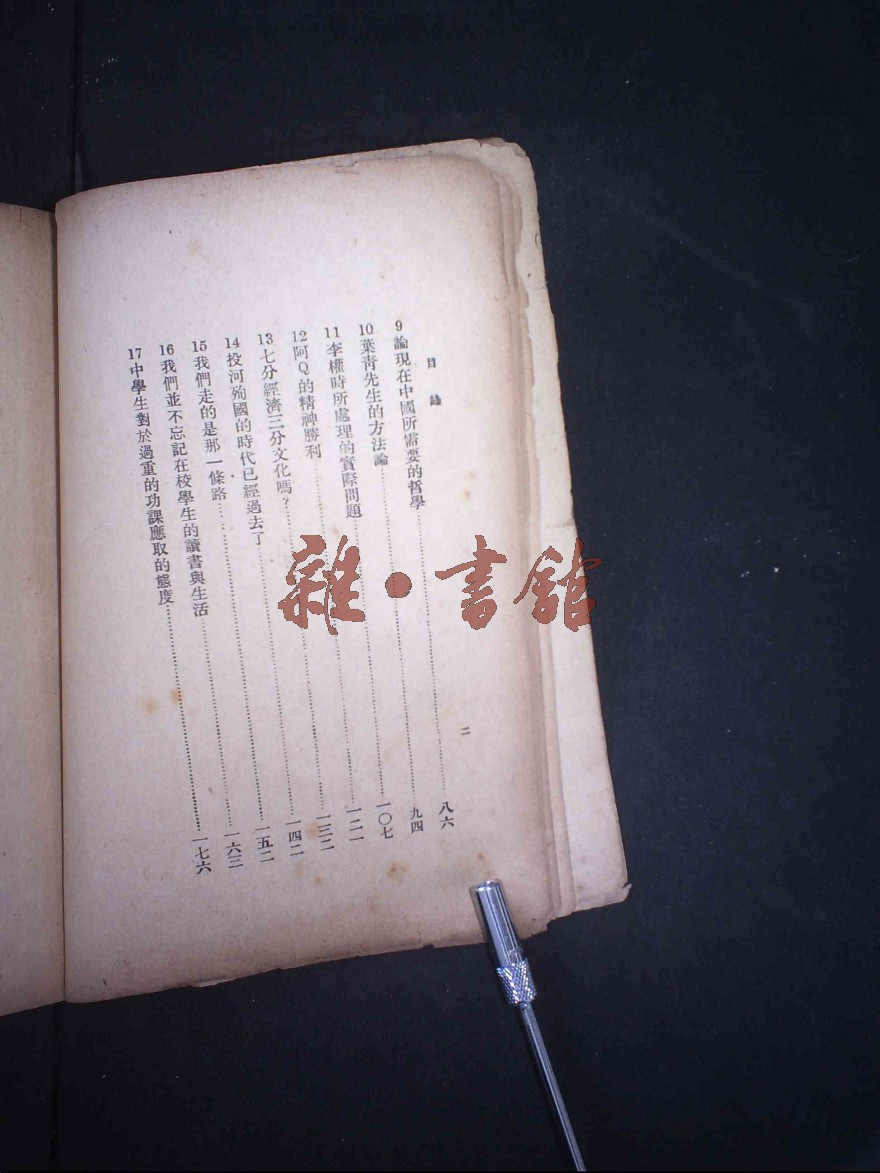 目錄
二
9 論現在中國所需要的哲學……八六
10 葉青先生的方法論……九四
11 李權時所處理的實際問題……一〇七
12 阿Q的精神勝利……一二一
13 七分經濟三分文化嗎？……一三二
14 投河殉國的時代已經過去了……一四二
15 我們走的是那一條路……一五二
16 我們並不忘記在校學生的讀書與生活……一六三
17 中學生對於過重的功課應取的態度……一七六
雜·書館